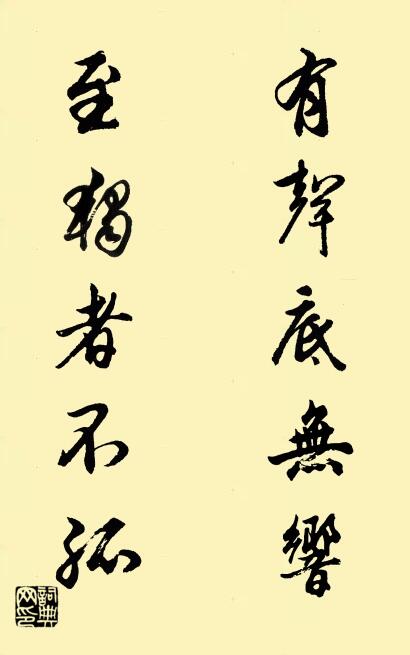 有聲底無響
至獨者不孤
詞典网印